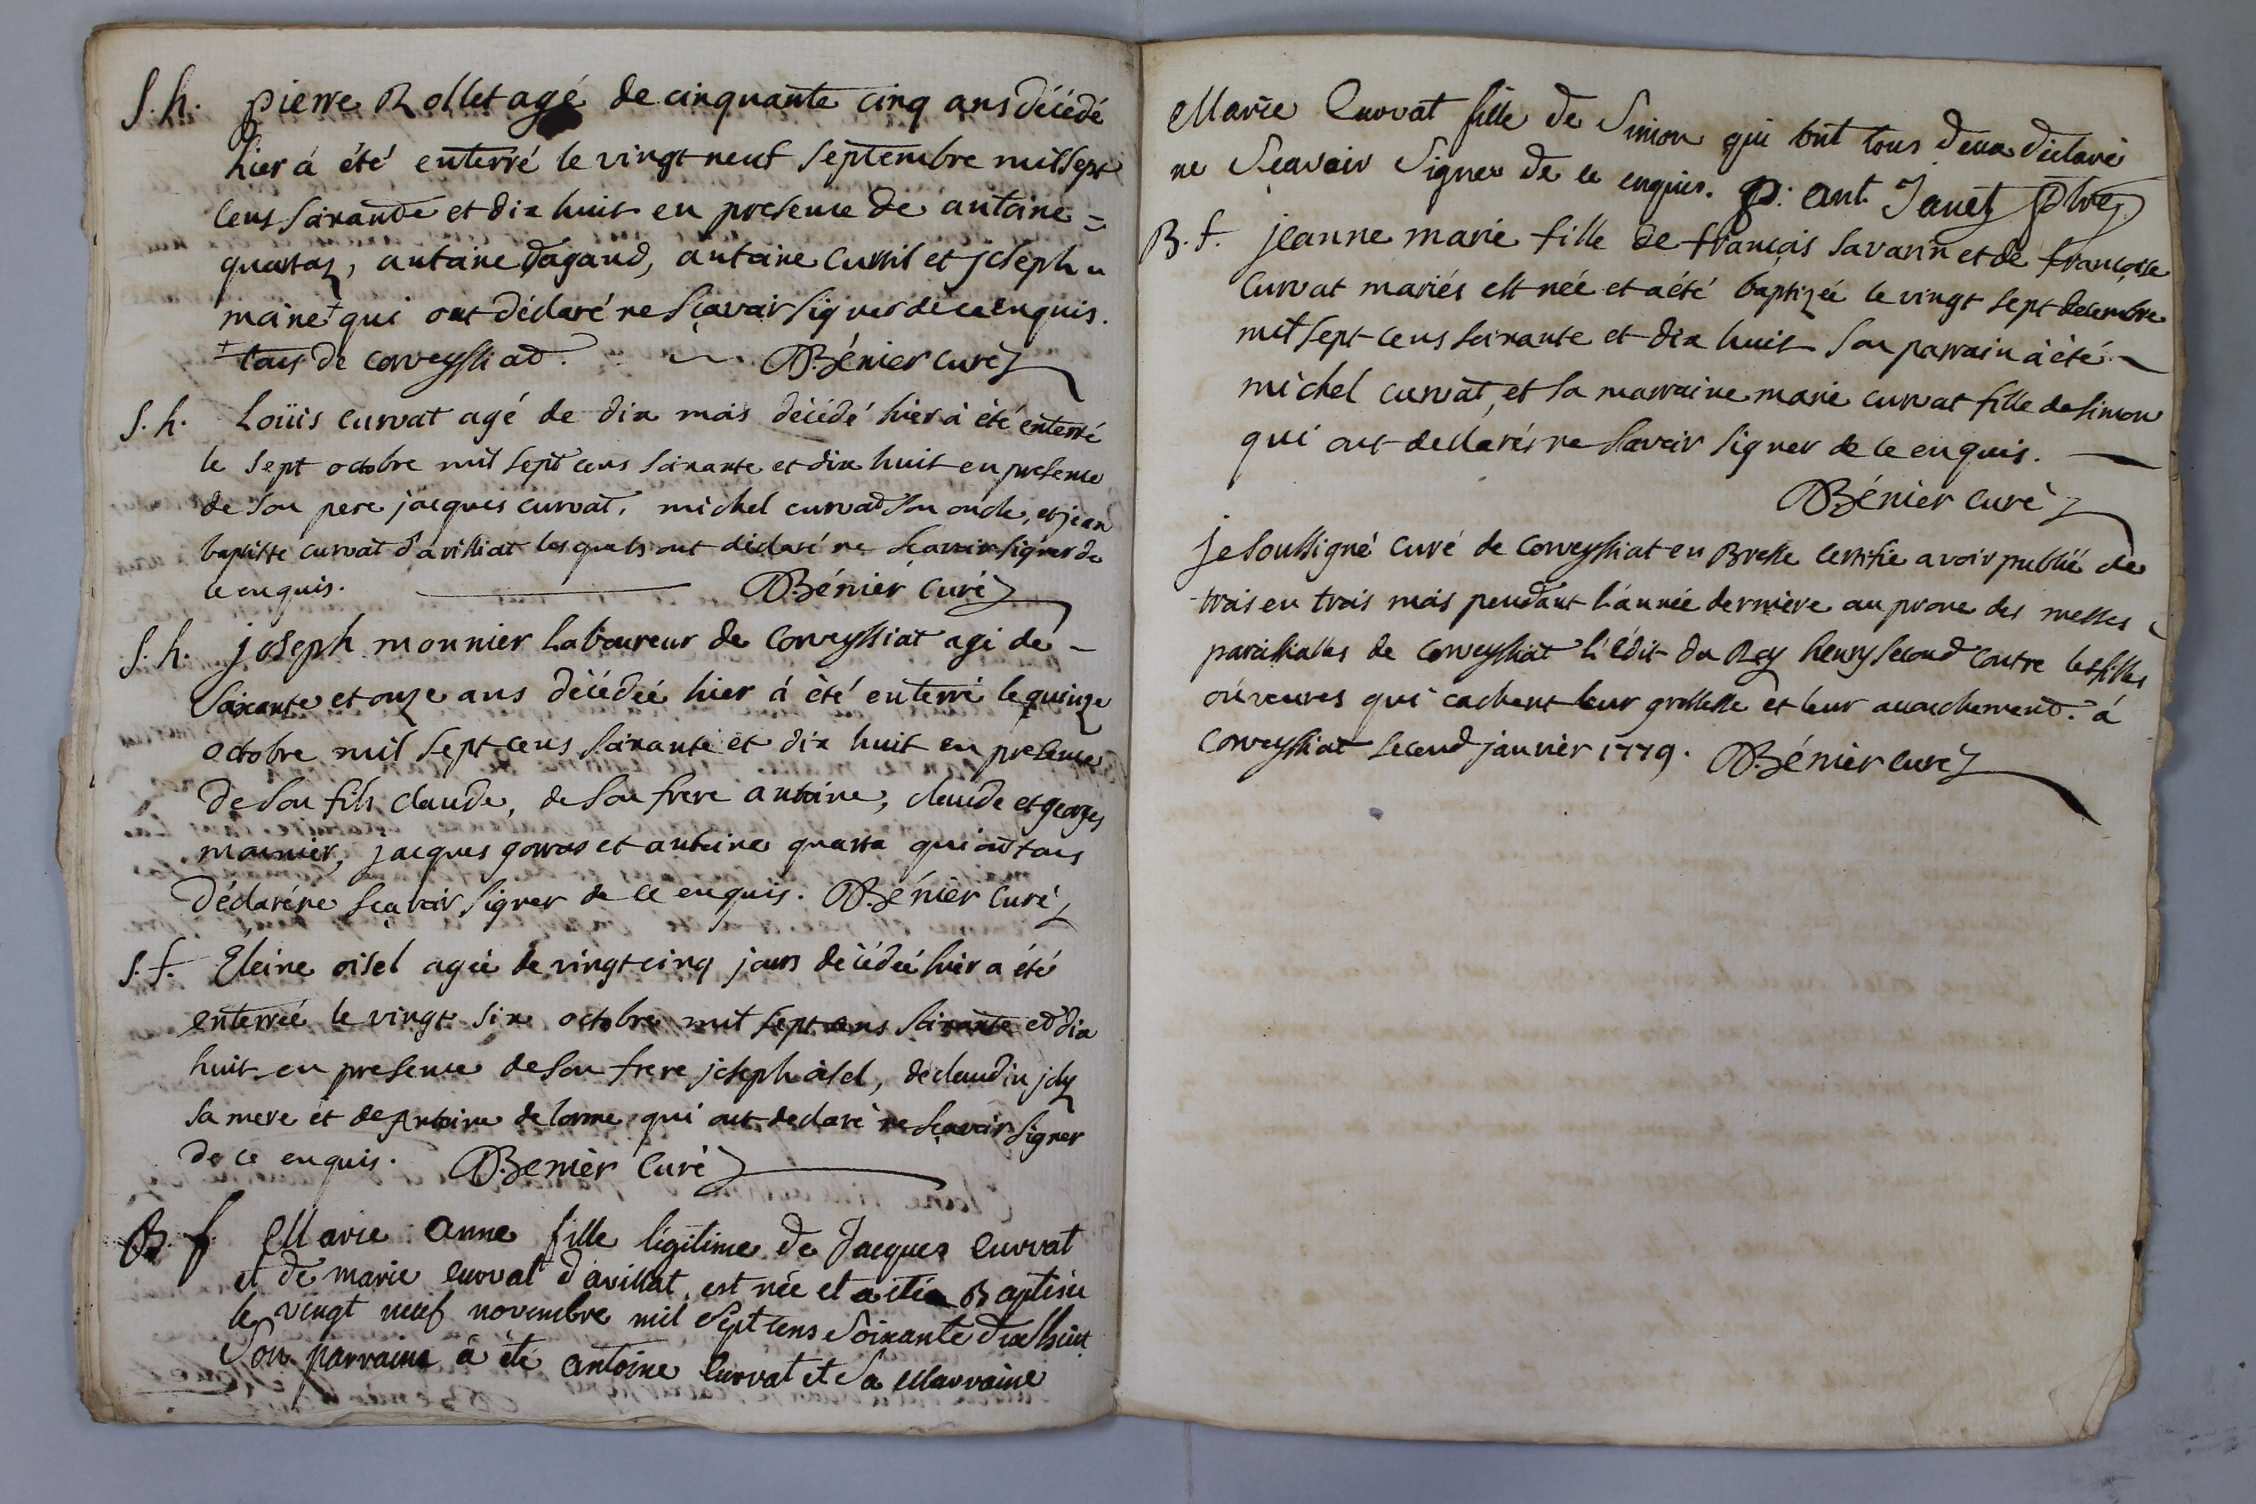 S. h. pierre Rollet agé de cinquante cinq ans décédé
hier à été enterré le vingt neuf septembre mil sept
cens soixante et dix huit en presence de antoine =
quarraz, antoine dagand, antoine curril et joseph
moine + qui ont déclaré ne sçavoir signer de ce enquis.
+ tous de corveyssiat. Bénier curé
S. h. Loüis curvat agé de dix mois décédé hier à été enterré
le sept octobre mil sept cens soixante et dix huit en presence
de son pere jacques curvat, michel curvat son oncle, et jean
baptiste curvat d'arilliat lesquels ont déclaré ne sçavoir signer de
ce enquis. Bénier curé
S. h. joseph monnier laboureur de corveyssiat agé de -
soixante et onze ans décédée hier á été enterré le quinze
octobre mil sept cens soixante et dix huit en presence
de son fils claude, de son frere antoine, claude et georges
monnier, jacques gorraz et antoine quarra qui ont tous
déclaré ne sçavoir signer de ce enquis. Bénier curé
S. f. Eleine oisel ageé de vingt cinq jours décédeé hier a été
enterrée le vingt six octobre mil sept cens soixante et dix
huit en presence de son frere joseph oisel, de claudin joly
sa mere et de Antoine delorme qui ont declaré ne sçavoir signer
de ce enquis. Benier curé
B. f. Marie Anne fille légitime de Jacques Curvat
et de marie Curvat d'arillat, est née et a étée Baptisée
le vingt neuf novembre mil sept cens soixante dix huit
Son parrain à été Antoine Curvat et sa Marraine
Marie Curvat fille de Simon qui ont tous deux déclaré
ne sçavoir signer de ce enquis. p. Ant. Janet
B. f. jeanne marie fille de françois savarin et de françoise
curvat mariés est née et a été baptizée le vingt sept decembre
mil sept cens soixante et dix huit son parrain à été
michel curvat, et sa marraine marie curvat fille de simon
qui ont declarés ne savoir signer de ce enquis.
Bénier curé
je soussigné curé de corveyssiat en Bresse certifie avoir publié de
trois en trois mois pendant l'année derniere au prone des messes
paroissialles de corveyssiat l'édit du Roy henry second contre les filles
où veuves qui cachent leur grossesse et leur accouchement. á
corveyssiat second janvier 1779. Bénier curé